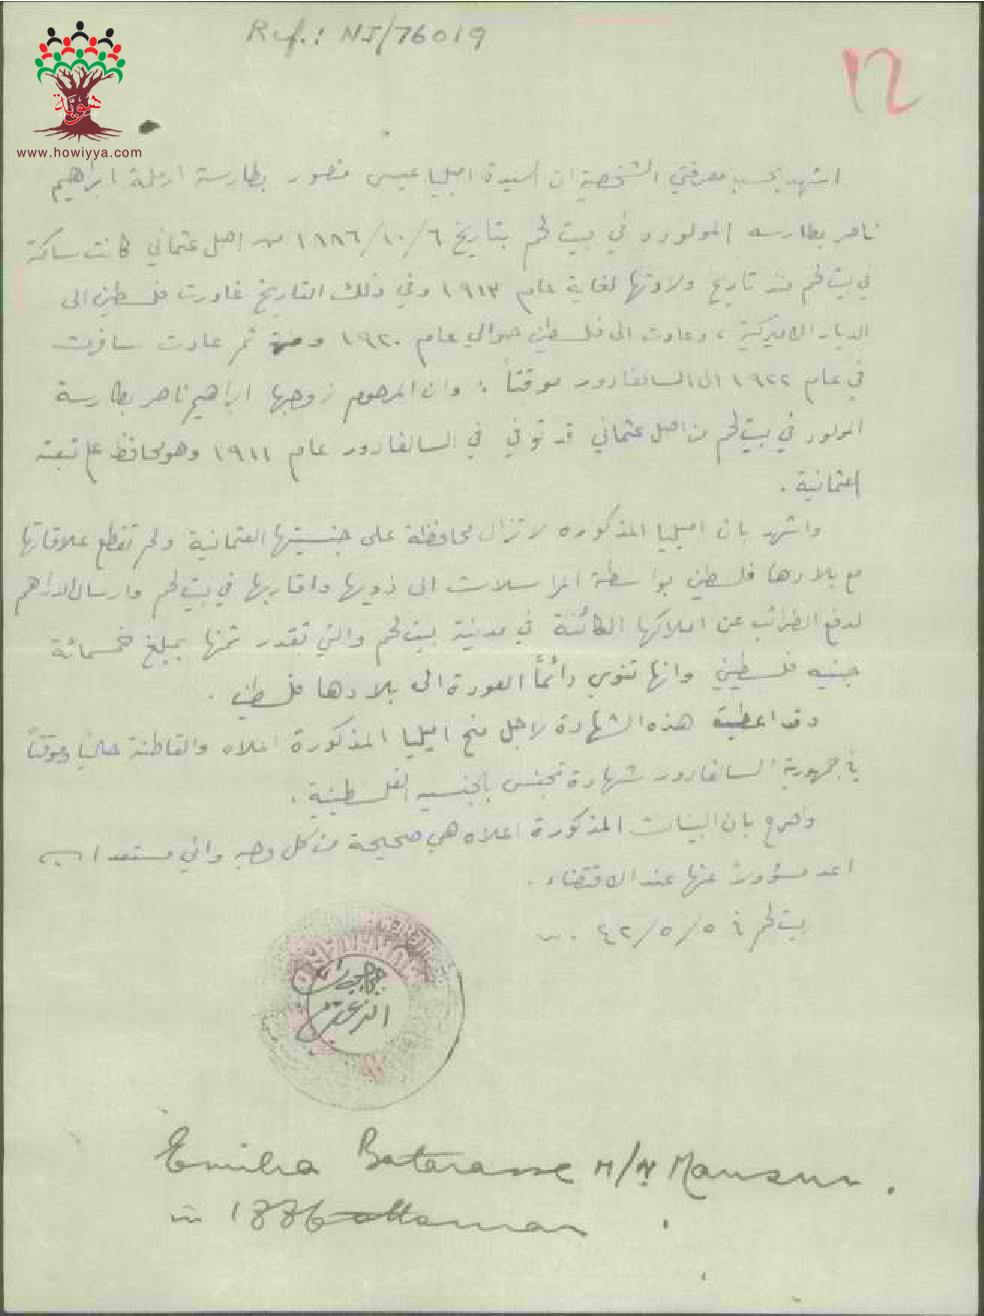 Ref.: NJ/76019
١٢
هوية
www.howiyya.com
اشهد بحسب معرفتي الشخصية ان السيدة اميليا عيسى منصور بطارسة ارملة ابراهيم
ناصر بطارسه المولوده في بيت لحم بتاريخ ٦/١٠/١٨٨٦ من اصل عثماني كانت ساكنة
في بيت لحم منذ تاريخ ولادتها لغاية عام ١٩١٣ وفي ذلك التاريخ غادرت فلسطين الى
الديار الاميركية، وعادت الى فلسطين حوالي عام ١٩٢٠ ثم عادت سافرت
في عام ١٩٢٢ الى السالفادور موقتاً: وان المرحوم زوجها ابراهيم ناصر بطارسة
المولود في بيت لحم من اصل عثماني قد توفي في السالفادور عام ١٩١١ وهو محافظ على تبعته
العثمانية.
واشهد بان اميليا المذكوره لا تزال محافظة على جنسيتها العثمانية ولم تقطع علاقاتها
مع بلادها فلسطين بواسطة المراسلات الى ذويها واقاربها في بيت لحم وارسال الدراهم
لدفع الضرائب عن املاكها الكائنة في مدينة بيت لحم والتي تقدر ثمنها بمبلغ خمسمائة
جنيه فلسطيني وانها تنوي دائماً العودة الى بلادها فلسطين.
وقد اعطيت هذه الشهادة لاجل منح اميليا المذكورة اعلاه والقاطنة حالياً وموقتاً
في جمهورية السالفادور شهادة تجنس بالجنسيه الفلسطينية.
واصرح بان البينات المذكورة اعلاه هي صحيحة من كل وجه واني مستعد ان
اعد مسؤولا عنها عند الاقتضاء.
بيت لحم في ٥/٥/٤٢
Emilia Batarasse M/N Mansur.
in 1886 ottoman.